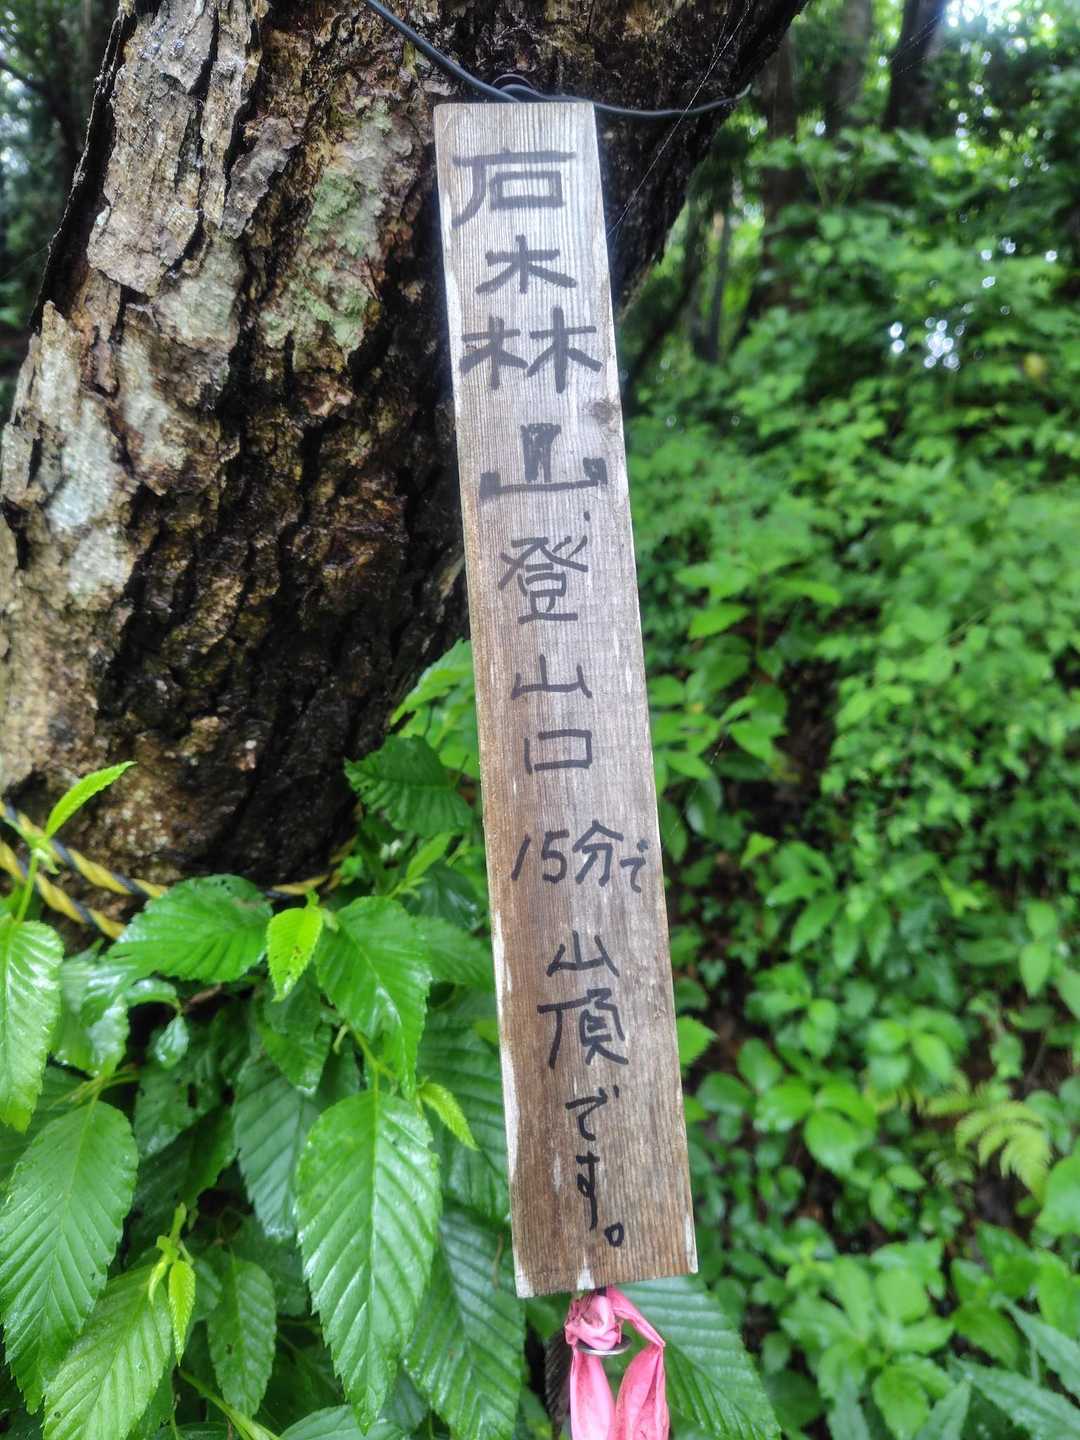 石森山登山口 15分で山頂です。